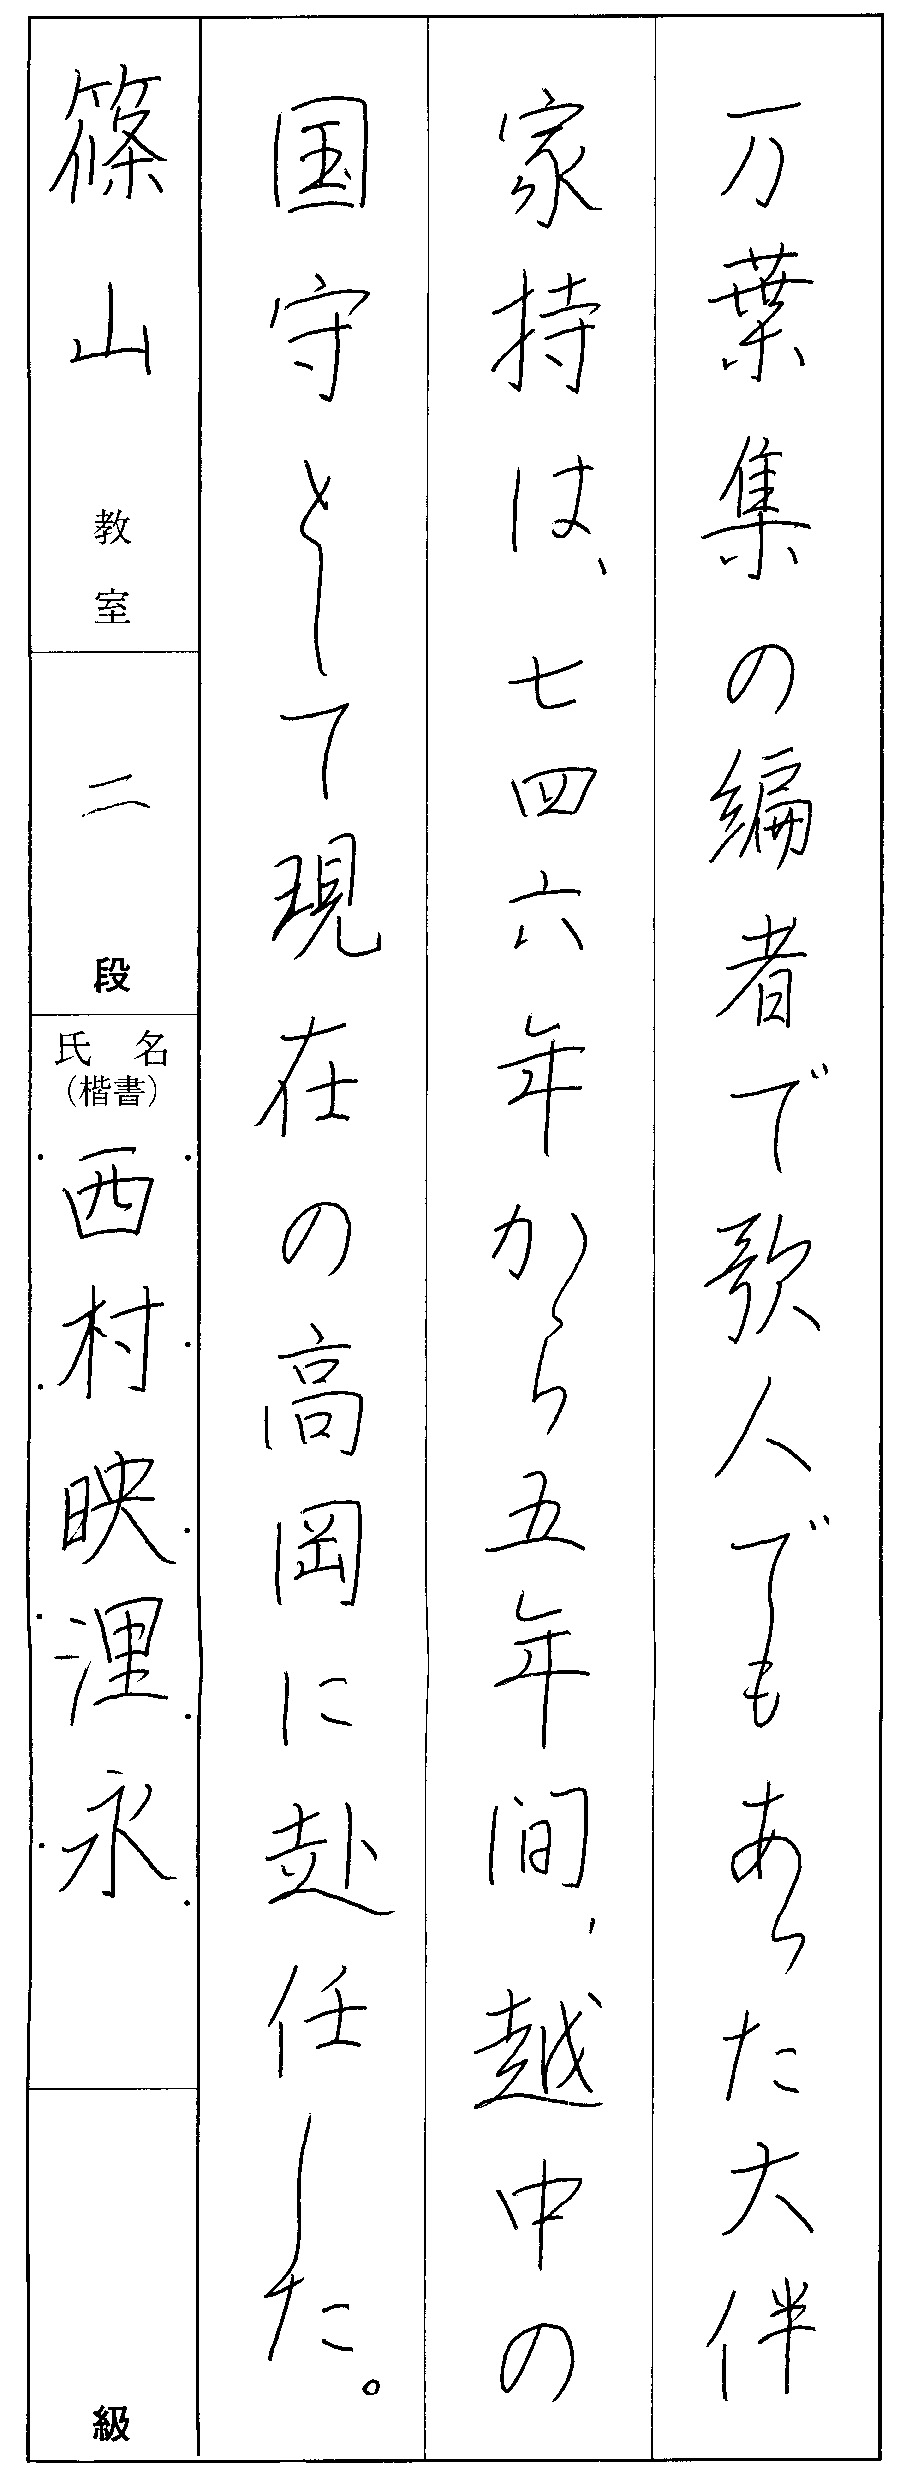 万葉集の編者で歌人でもあった大伴
家持は、七四六年から五年間、越中の
国守として現在の高岡に赴任した。
篠山教室
二段
氏名
(楷書)
西村映浬永
級